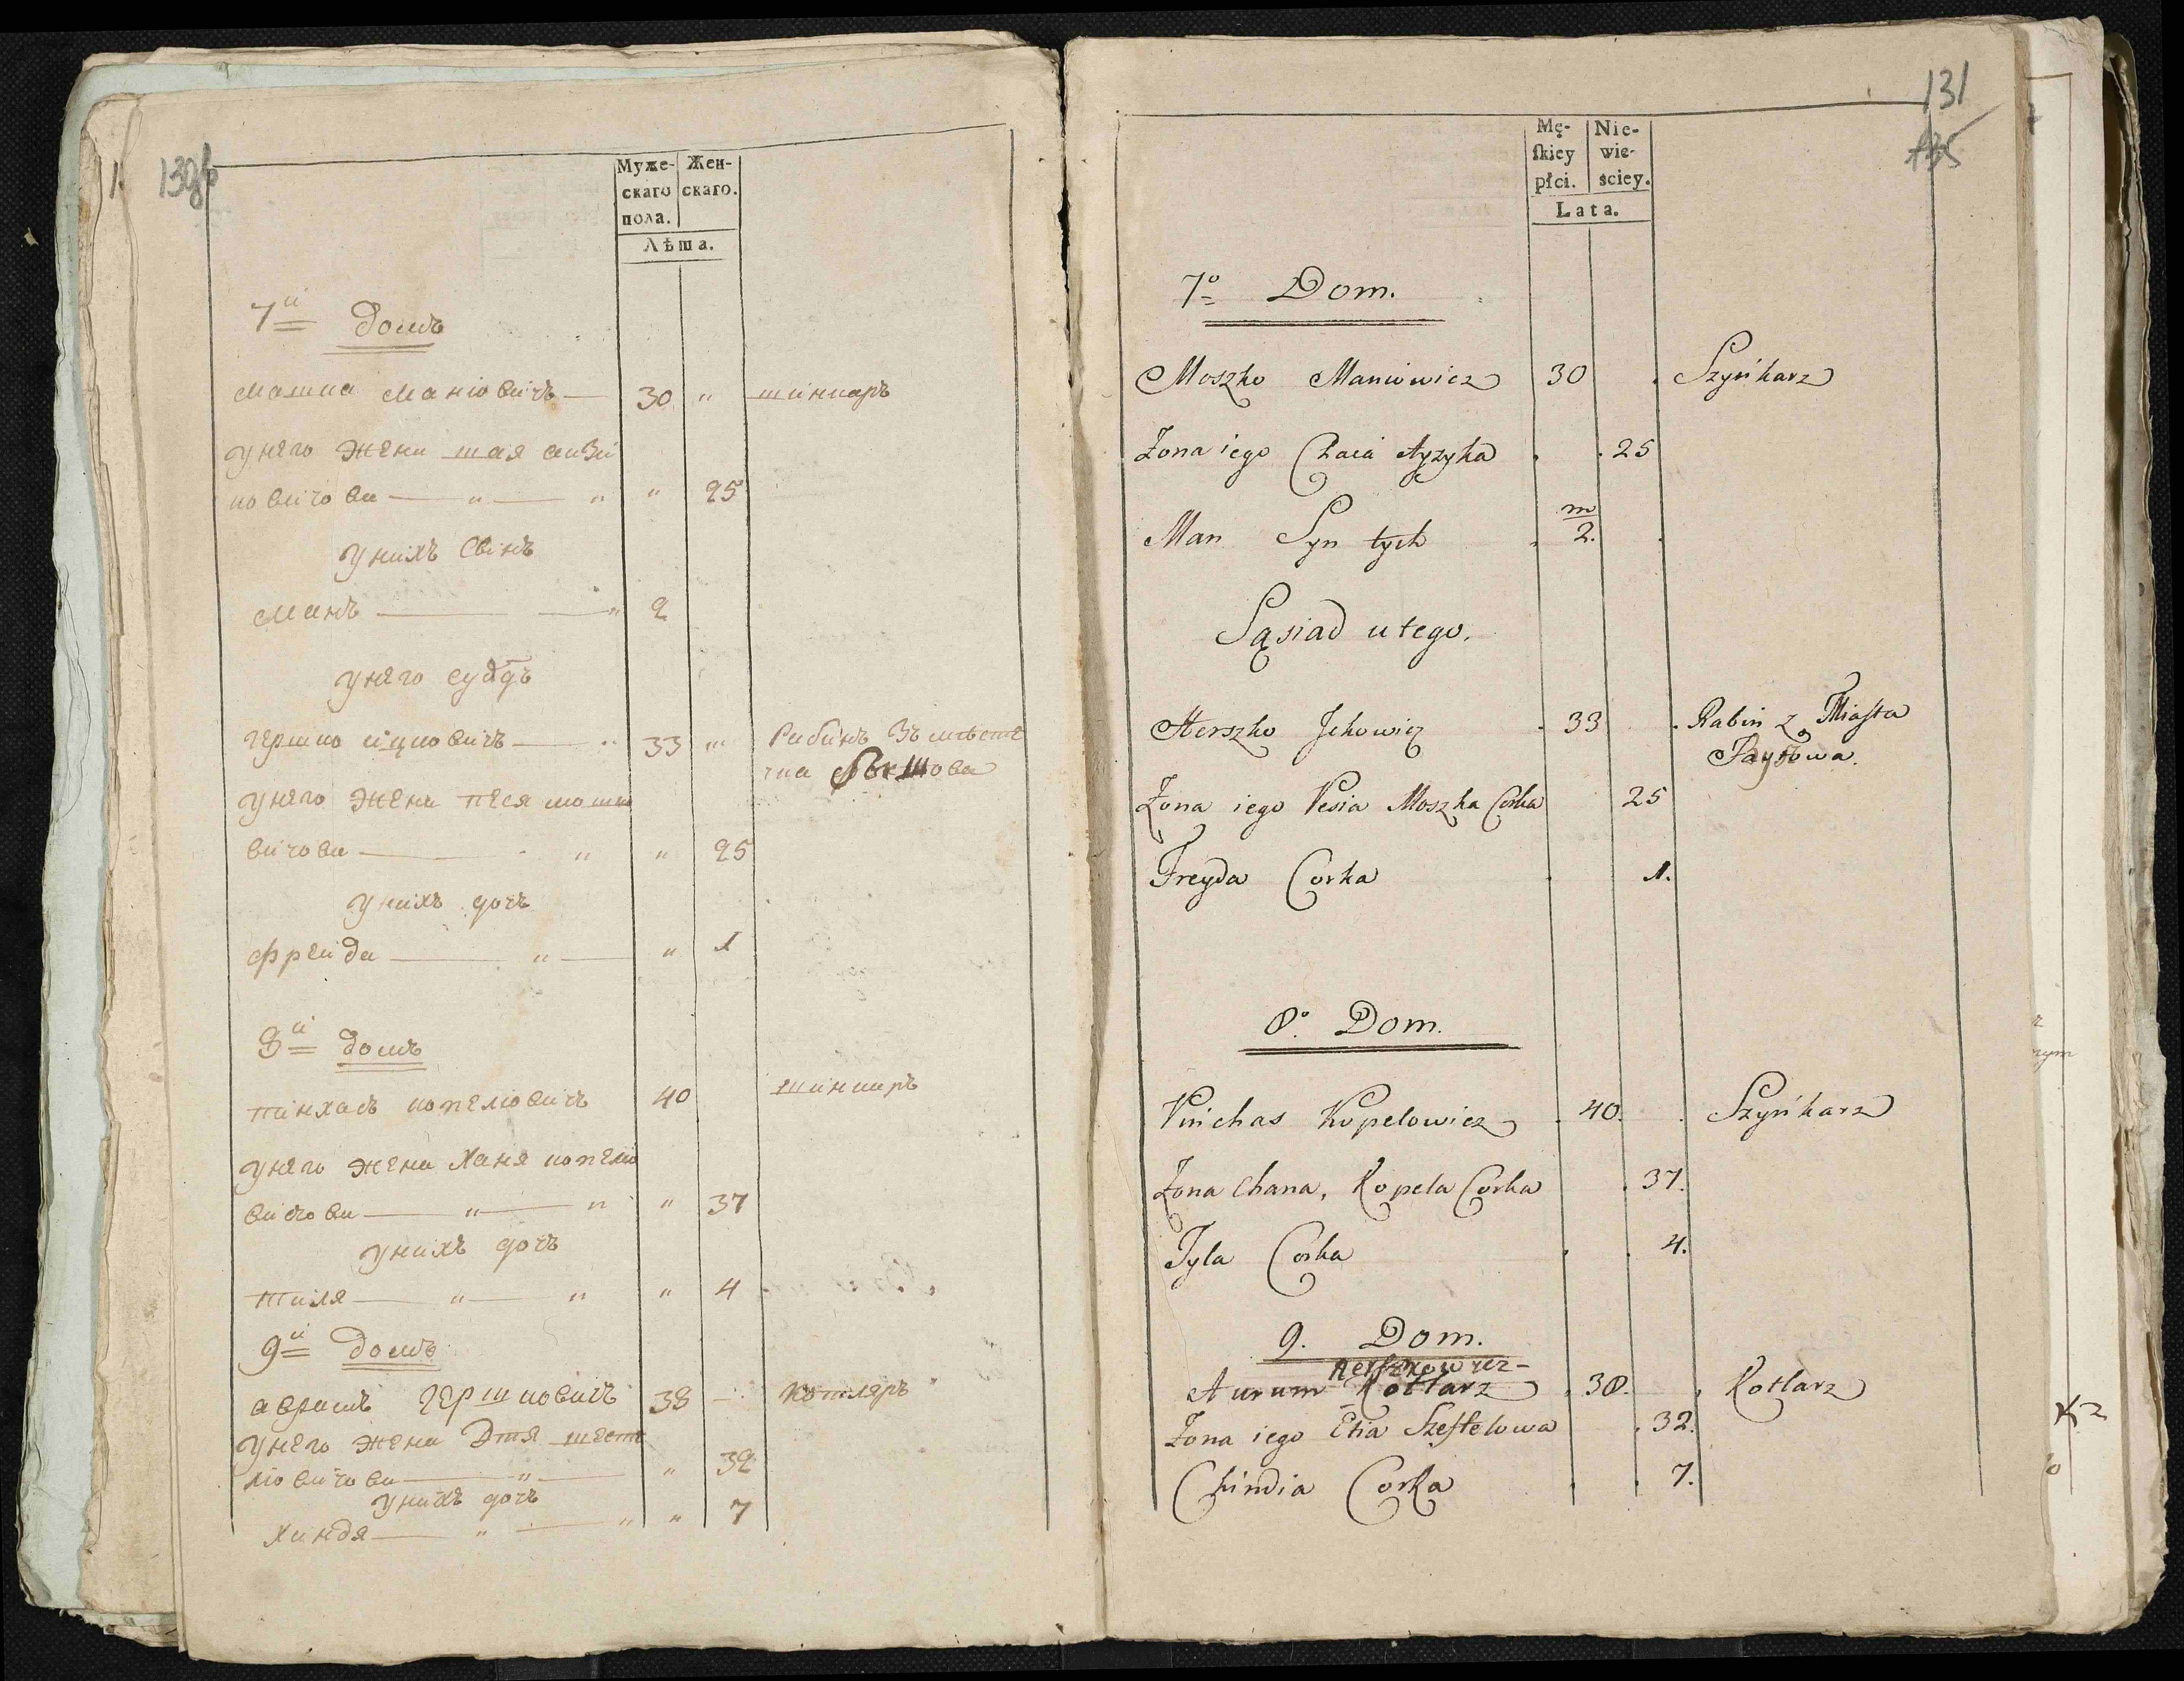 130об
Муже- Жен-
скаго скаго.
пола.
Лѣта.
7й домъ
Мошка Манiовичъ 30 " шинкаръ
у него жена
ковичова " " " 25
у нихъ синъ
Манъ " 2
у него сусѣдъ
Гершко ицковичъ " 33 " Рабинъ зъ мѣсте
чка
у него жена Песя мошко
вичова " " 25
у нихъ дочъ
Фрейда " " 1
8й домъ
Пинхасъ копелiовичъ 40 шинкаръ
у него жена Ханя копелiо
вичова " " " 37
у нихъ дочъ
Тиля " " " 4
9й домъ
Аврамъ Гершковичъ 38 Котляръ
у него жена Этя шефте
лiовичова " " 32
у нихъ дочъ
Хиндя " " " 7
131
135
Mę- Nie-
ſkiey wie-
płci. ściey.
Lata.
7º Dom.
Moszko Maniowicz 30 Szyńkarz
Żona iego Chaia Ayzyka 25
Man Syn tych m/2.
Sąsiad u tego.
Herszko Jckowicz 33 Rabin z Miasta
Żona iego Pesia Moszka Corka 25
Freyda Corka 1.
8º Dom.
Pinchas Kopelowicz 40. Szyńkarz
Żona Chana, Kopela Corka 37.
Tyla Corka 4.
9. Dom.
Herszkowicz
Aurum Kotlarz 38. Kotlarz
Żona iego Etia Szeftelowa 32.
Chindia Corka 7.